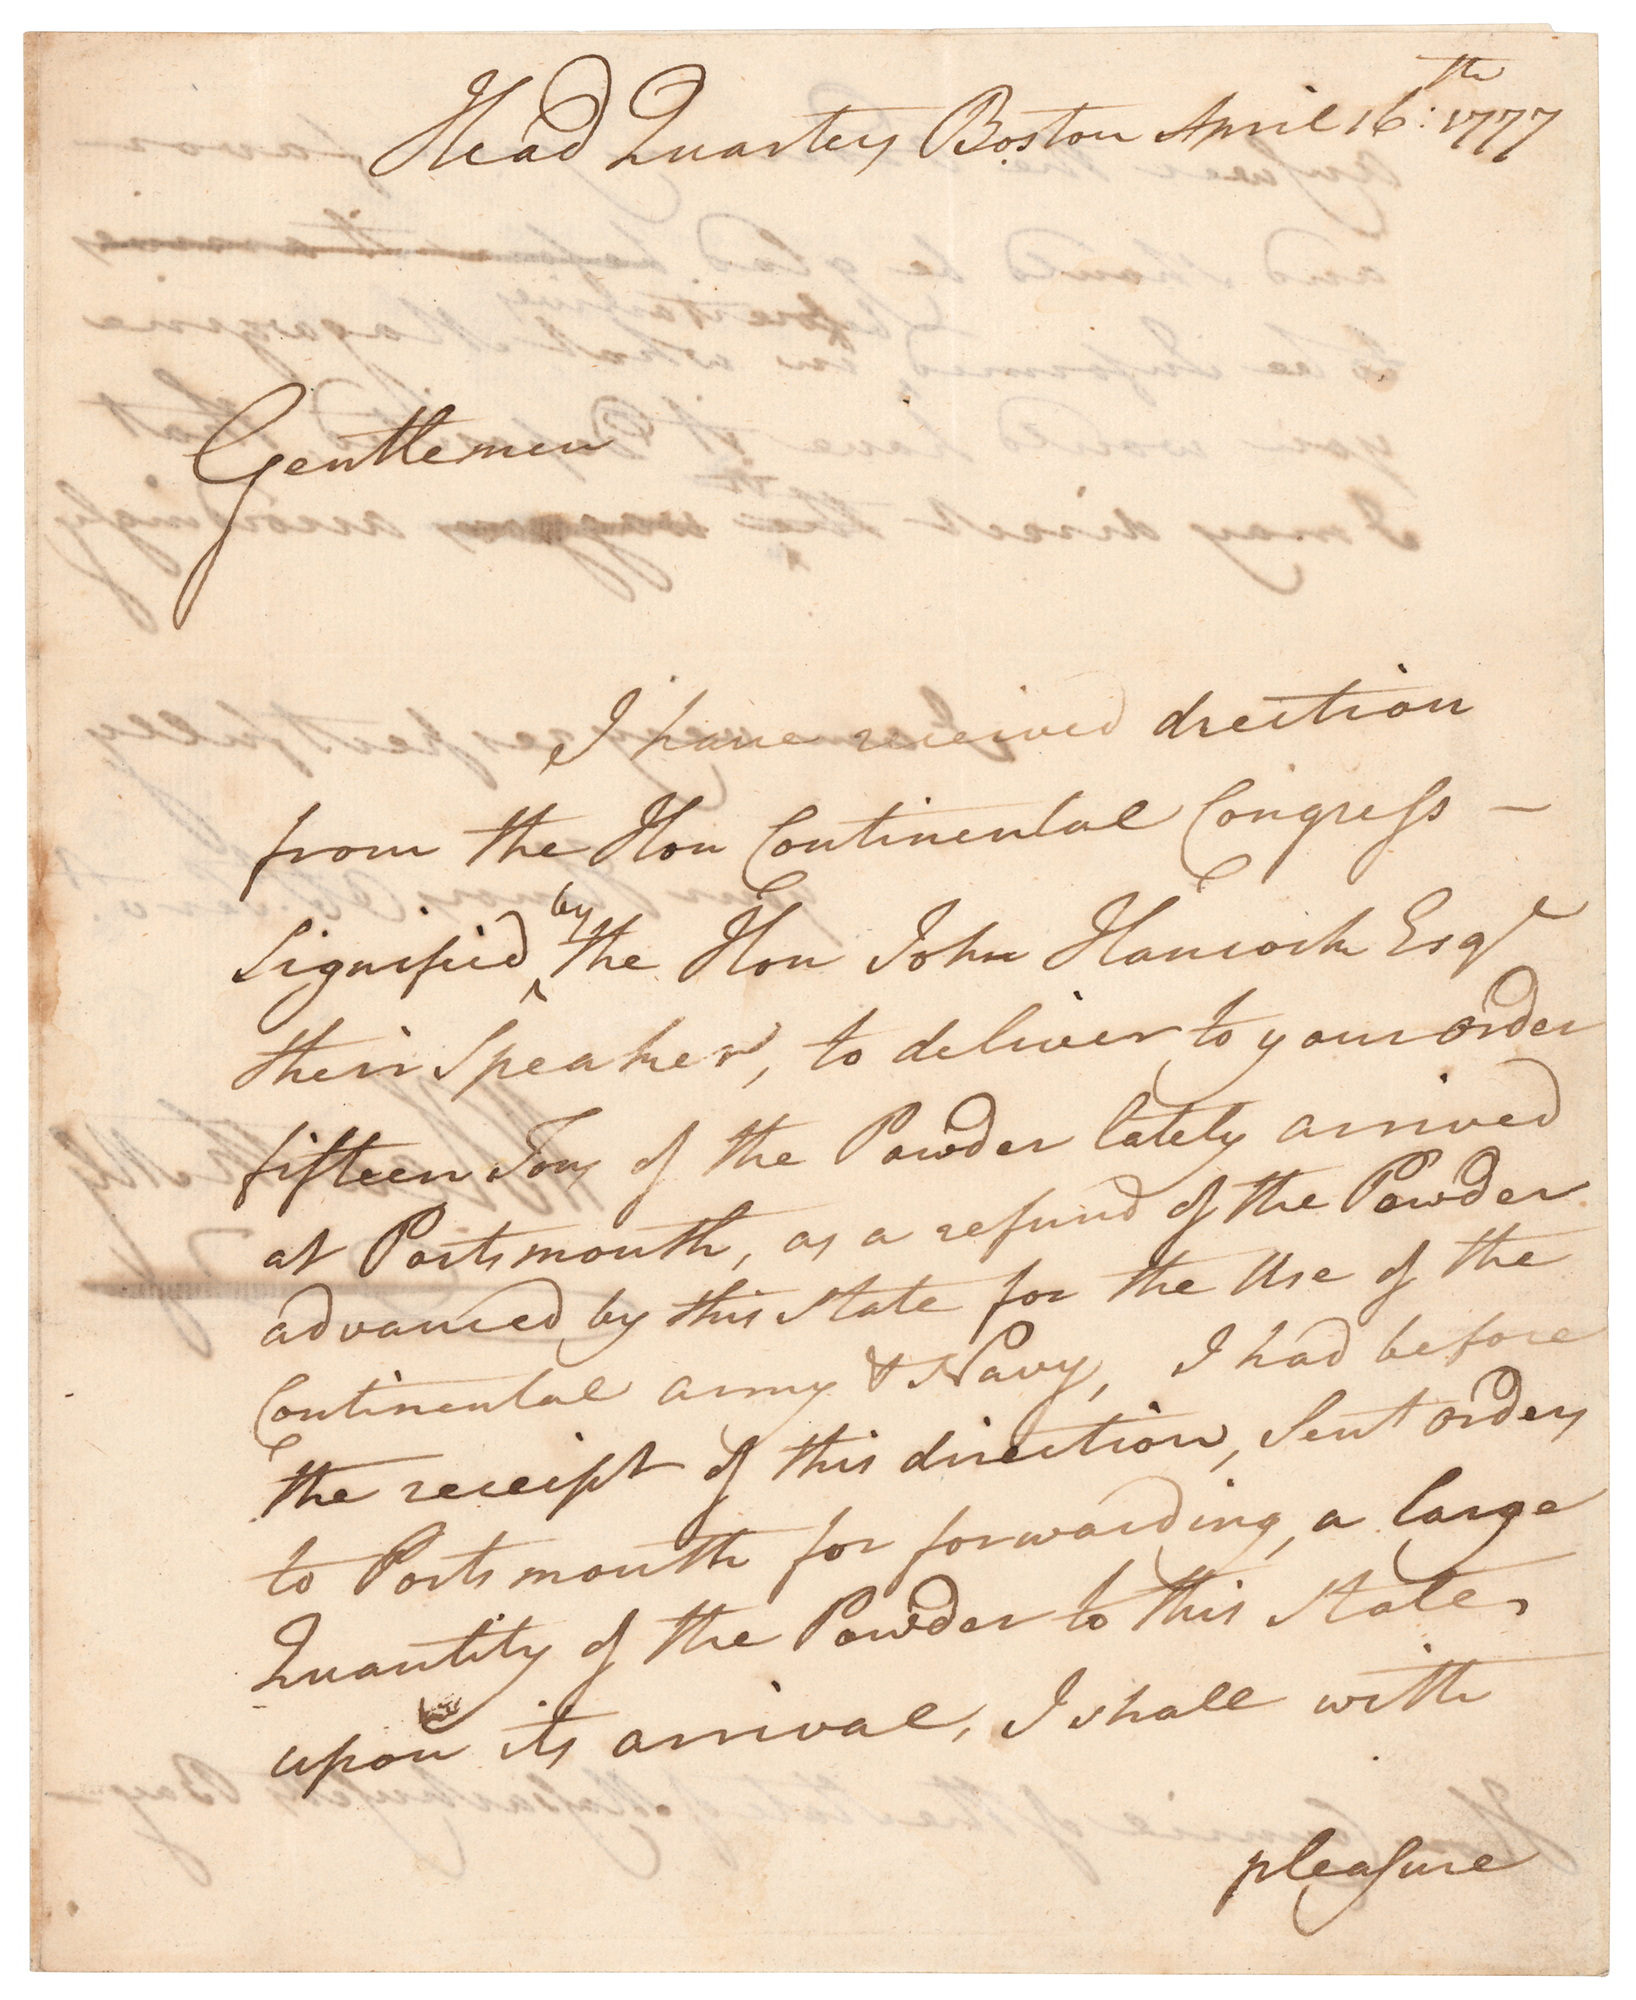 Head Quarters Boston April 16:th 1777
Gentlemen
I have received drection
from the Hon Continental Congress —
Signified by the Hon John Hancock Esqr
their Speaker, to deliver to your order
fifteen Tons of the Powder lately arrived
at Portsmouth, as a refund of the Powder
advanced by this State for the Use of the
Continental army & Navy, I had before
the receipt of this direction, Sent orders
to Portsmouth for forwarding, a large
Quantity of the Powder to this State,
upon its arrival, I shall with
pleasure